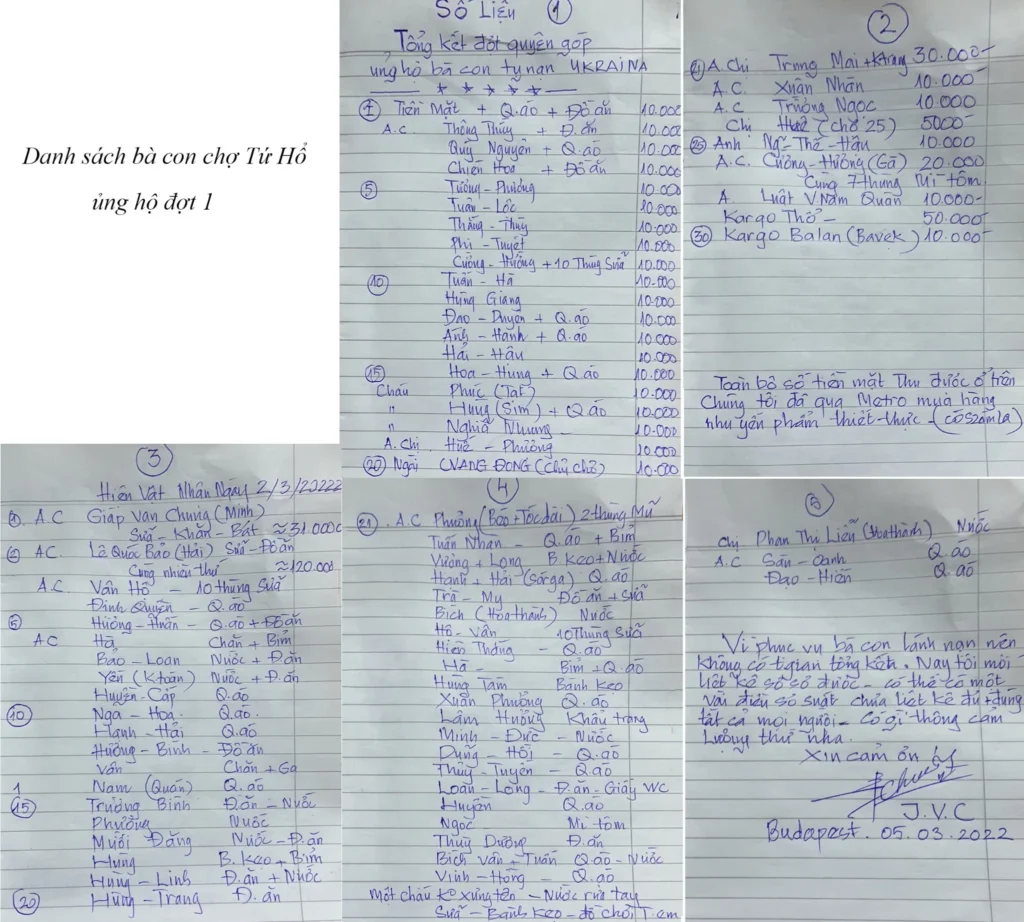 Danh sách bà con chợ Tứ Hổ
ủng hộ đợt 1
Số Liệu 1
Tổng kết đợt quyên góp
ủng hộ bà con tỵ nạn UKRAINA
1 Tiền Mặt + Q.áo + Đồ ăn 10.000
A.C. Thông Thúy + Đ.ăn 10.000
Quý Nguyên + Q.áo 10.000
Chiến Hoa + Đồ ăn 10.000
5 Tưởng - Phương 10.000
Tuấn - Lộc 10.000
Thắng - Thúy 10.000
Phi - Tuyết 10.000
Cường - Hường + 10 Thùng Sữa 10.000
10 Tuấn - Hà 10.000
Hùng Giang 10.000
Đạo - Duyên + Q.áo 10.000
Ánh - Hạnh + Q.áo 10.000
Hải - Hậu 10.000
15 Hoa - Hùng + Q.áo 10.000
Cháu Phúc (Tát) 10.000
" Hùng (Sim) + Q.áo 10.000
" Nghiã Nhung 10.000
A.Chị Huế - Phương 20.000
20 Ngài CVANG ĐONG (Chủ chợ) 10.000
2
21 A.Chị Trung Mai + 30.000-
A.C. Xuân Nhàn 10.000-
A.C Trường Ngọc 10.000
Chị Huế (chợ 25) 5000-
25 Anh Ng-Thế-Hậu 10.000
A.C. Cường-Hường (Gà) 20.000
Cùng 7 thùng Mì tôm.
A Luật V.Nam Quán 10.000-
Kargo Thổ - 50.000-
30 Kargo Balan (Bavek) 10.000-
Toàn bộ số tiền mặt Thu được ở trên
Chúng tôi đã qua Metro mua hàng
nhu yến phẩm thiết-thực - (có számla)
3
Hiện Vật Nhận Ngày 2/3/20222
A.C Giáp Văn Chung (Minh)
Sữa - Khăn - Bát ≈ 31.000
A.C. Lê Quốc Bảo (Hải) Sữa - Đồ ăn
Cùng nhiều thứ ≈ 120.000
A.C. Vân Hổ - 10 thùng Sữa
Đinh Quyên - Q.áo
5 Hương - Huấn - Q.áo + Đồ ăn
A C Hà Chăn + Bỉm
Bảo - Loan Nước + Đ.ăn
Yến (Khoan) Nước + Đ.ăn
Huyên - Cấp Q.áo
10 Nga - Hoa. Q.áo.
Hạnh - Hải Q.áo
Hương - Bình - Đồ ăn
Vân Chăn + Ga
1 Nam (Quán) Q.áo
15 Trường Bình Đ.ăn - Nước
Phương Nước
Mười Đặng Nước - Đ.ăn
Hưng B. Kẹo + Bỉm
Hùng - Linh Đ.ăn + Nước
20 Hùng - Trang Đ. ăn
4
21 A.C Phương (Bão + Tóc dài) 2 thùng Mũ
Tuấn Nhàn - Q.áo + Bỉm
Vương + Long B. Kẹo + Nước
Hạnh + Hải (Sárga) Q.áo
Trà - My Đồ ăn + Sữa
Bích (Hoa thành) Nước
Hồ - Vân 10 Thùng Sữa
Hiền Thắng - Q.áo
Hà - Bỉm + Q.áo
Hùng Tâm Bánh Kẹo
Xuân Phương Q.áo
Lâm Hường Khẩu trang
Minh - Đức - Nước
Dung - Hội - Q.áo
Thủy - Tuyên - Q.áo
Loan - Long - Đ.ăn - Giấy WC
Huyền Q.áo
Ngọc Mì tôm
Thùy Dương Đ.ăn
Bích Vân + Tuấn Q.áo - Nước
Vinh - Hồng - Q.áo
Một cháu Ko xưng tên - Nước rửa tay
Sữa - Bánh Kẹo - đồ chơi T.em
5
Chị Phan Thị Liễu (Hoa thành) Nước
A.C Sâu - Oanh Q.áo
Đạo - Hiền Q.áo
Vì phục vụ bà con lánh nạn nên
Không có t.gian tổng kết. Nay tôi mới
liệt kê sơ sơ được - có thể có một
vài điều sơ suất chưa liệt kê đủ + đúng
tất cả mọi người - Có gì thông cảm
Lượng thứ nha.
Xin cảm ơn
J.V.C
Budapest. 05.03.2022